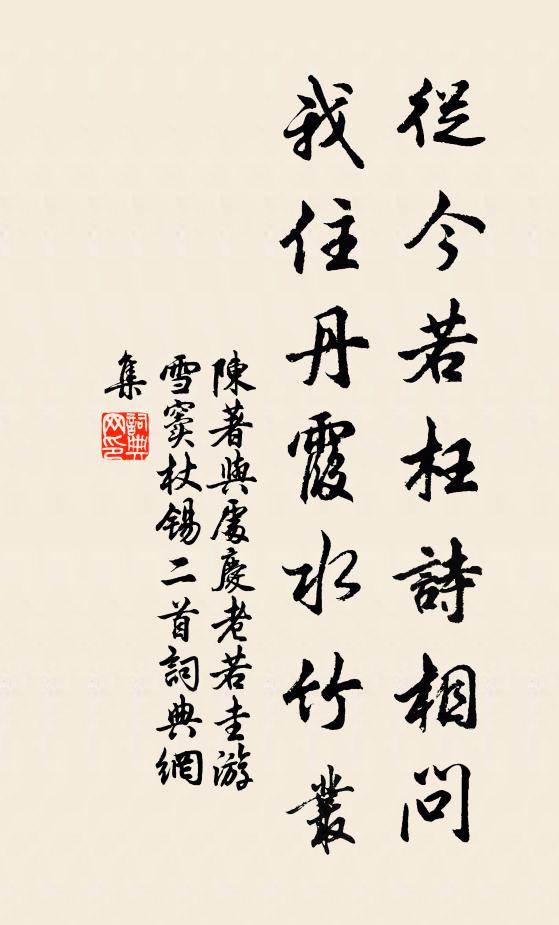 從今若枉詩相問
我住丹霞水竹叢
陳著與處慶老若圭游
雪竇杖錫二首詞典網
集
詞典網印